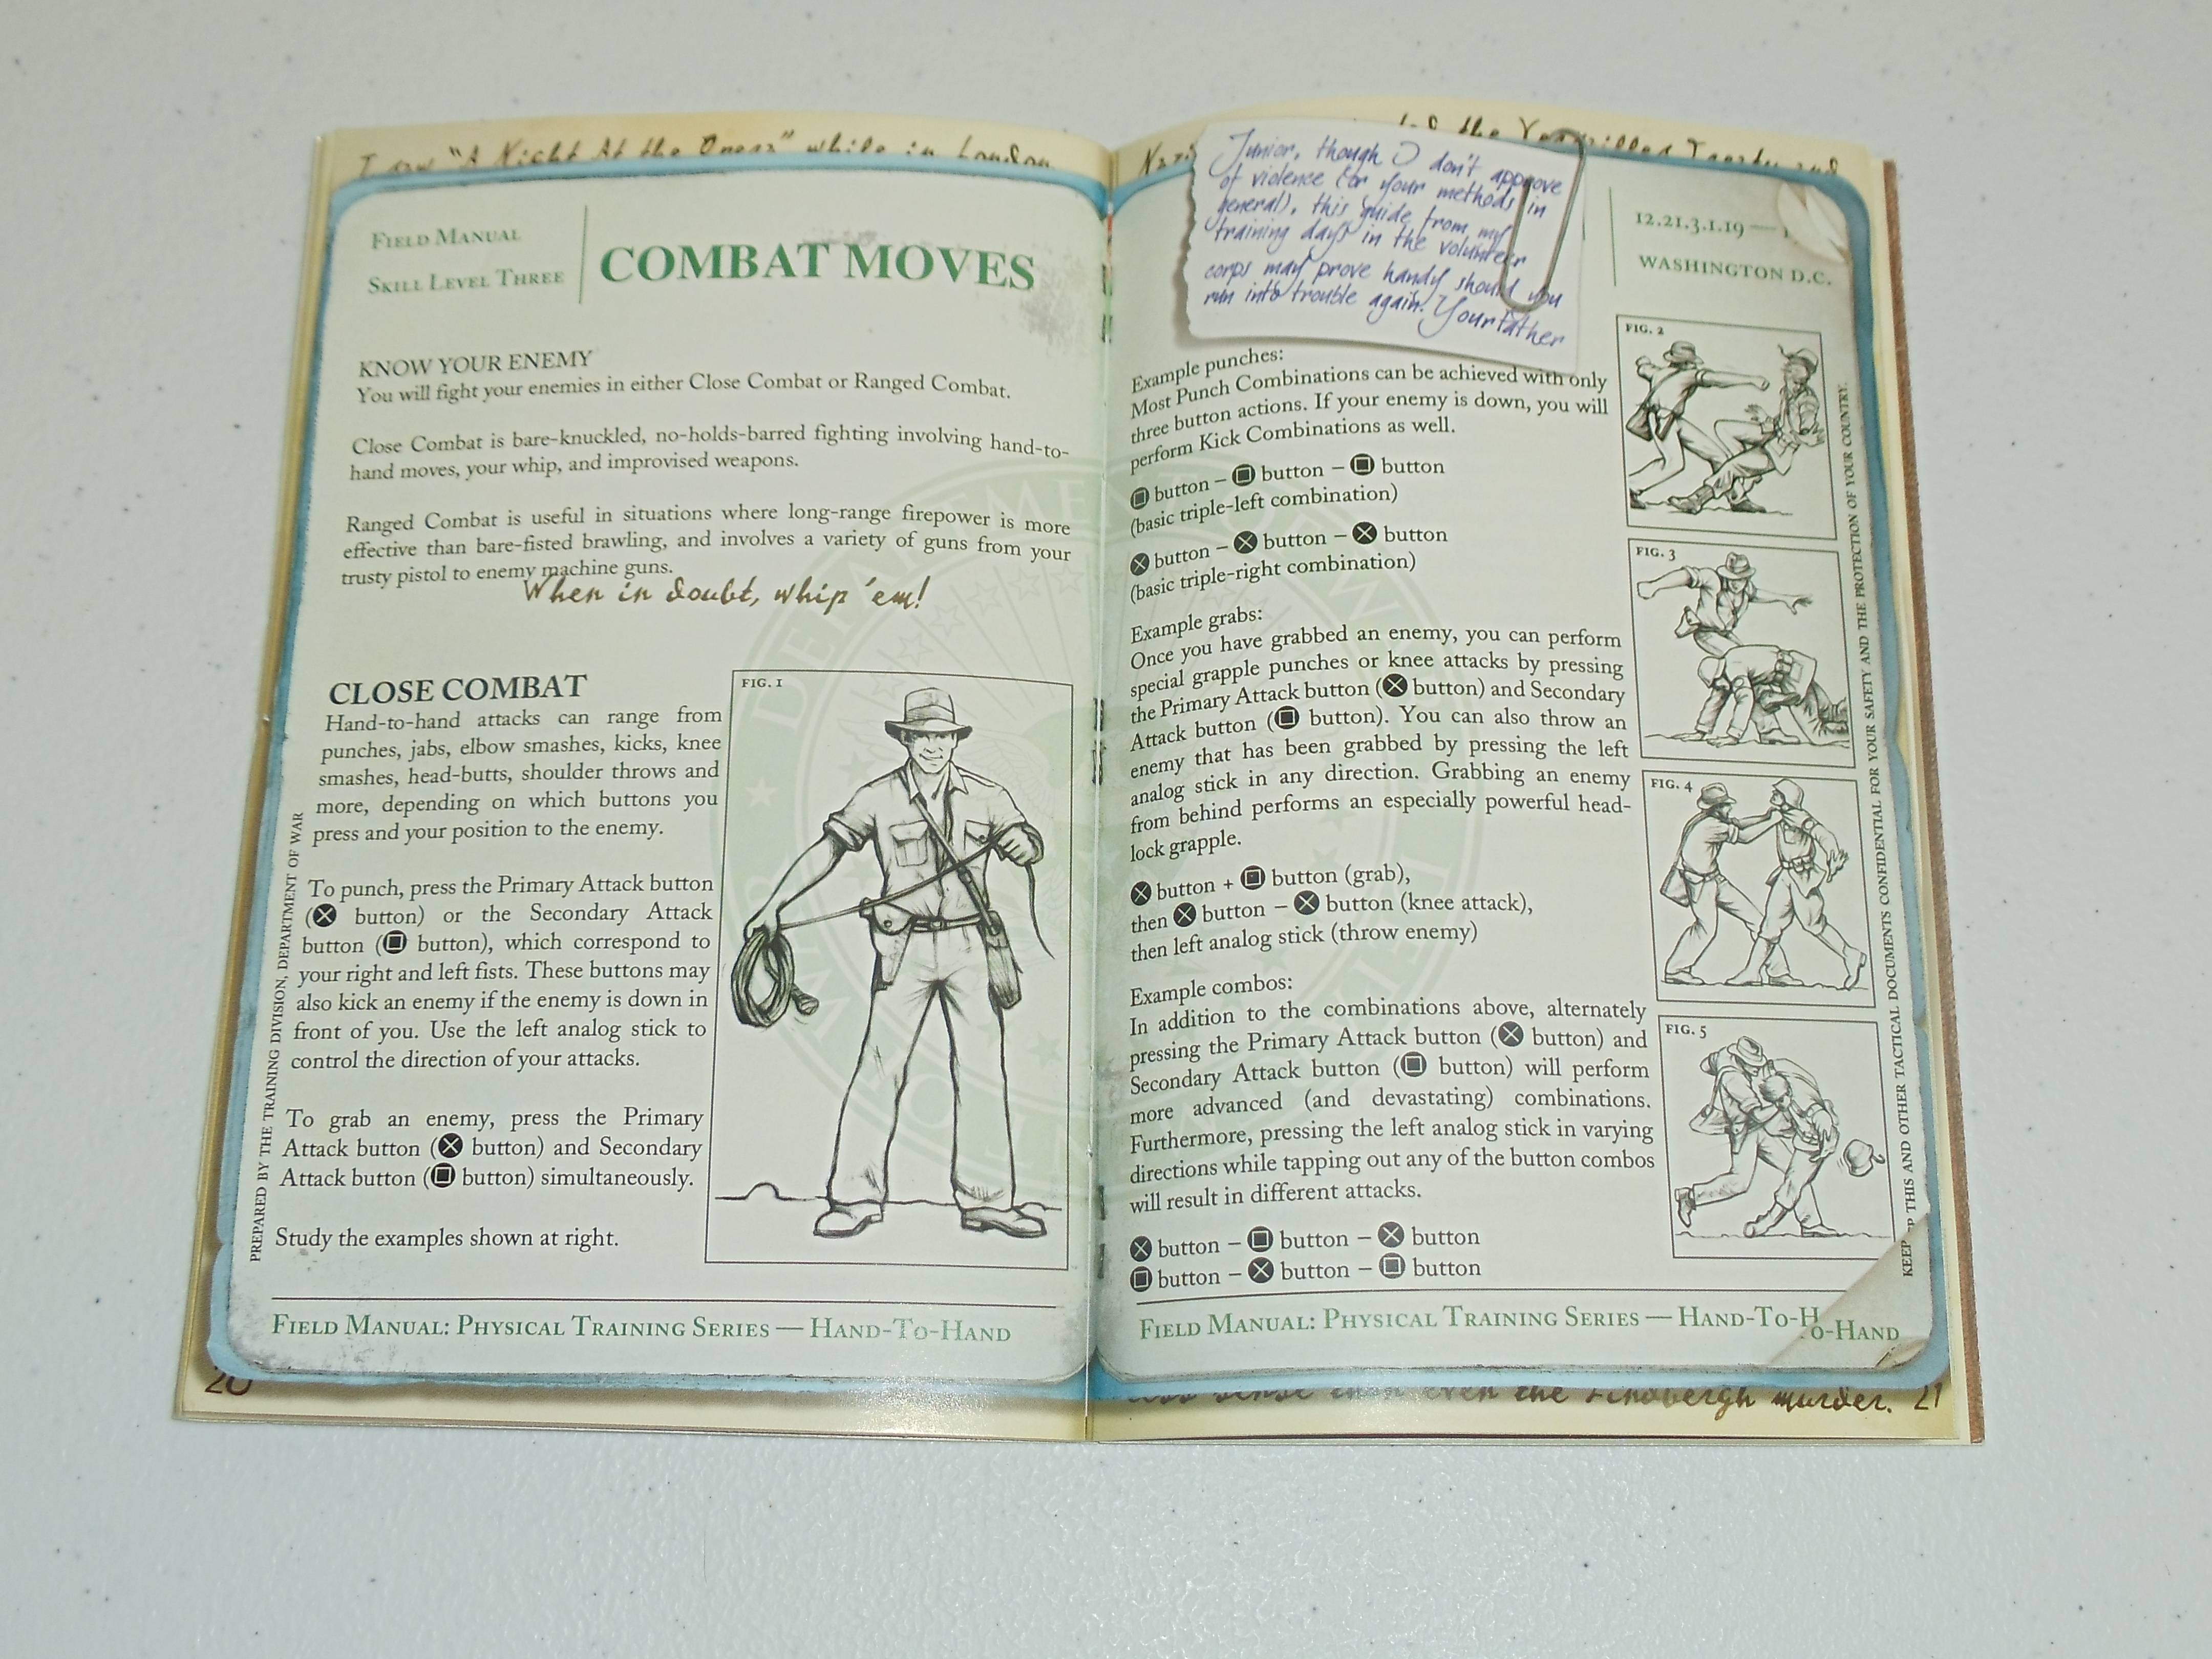 I saw "A Night At the Opera" while in London
FIELD MANUAL
SKILL LEVEL THREE
COMBAT MOVES
KNOW YOUR ENEMY
You will fight your enemies in either Close Combat or Ranged Combat.
Close Combat is bare-knuckled, no-holds-barred fighting involving hand-to-
hand moves, your whip, and improvised weapons.
Ranged Combat is useful in situations where long-range firepower is more
effective than bare-fisted brawling, and involves a variety of guns from your
trusty pistol to enemy machine guns.
When in doubt, whip 'em!
CLOSE COMBAT
Hand-to-hand attacks can range from
punches, jabs, elbow smashes, kicks, knee
smashes, head-butts, shoulder throws and
more, depending on which buttons you
press and your position to the enemy.
To punch, press the Primary Attack button
(ⓧ button) or the Secondary Attack
button (□ button), which correspond to
your right and left fists. These buttons may
also kick an enemy if the enemy is down in
front of you. Use the left analog stick to
control the direction of your attacks.
To grab an enemy, press the Primary
Attack button (ⓧ button) and Secondary
Attack button (□ button) simultaneously.
Study the examples shown at right.
FIG. 1
PREPARED BY THE TRAINING DIVISION, DEPARTMENT OF WAR
FIELD MANUAL: PHYSICAL TRAINING SERIES — HAND-TO-HAND
20
the Versailles Treaty and
Junior, though I don't approve
of violence (or your methods in
general), this guide from my
training days in the volunteer
corps may prove handy should you
run into trouble again. Your father
12.21.3.1.19 —
WASHINGTON D.C.
Example punches:
Most Punch Combinations can be achieved with only
three button actions. If your enemy is down, you will
perform Kick Combinations as well.
□ button – □ button – □ button
(basic triple-left combination)
ⓧ button – ⓧ button – ⓧ button
(basic triple-right combination)
Example grabs:
Once you have grabbed an enemy, you can perform
special grapple punches or knee attacks by pressing
the Primary Attack button (ⓧ button) and Secondary
Attack button (□ button). You can also throw an
enemy that has been grabbed by pressing the left
analog stick in any direction. Grabbing an enemy
from behind performs an especially powerful head-
lock grapple.
ⓧ button + □ button (grab),
then ⓧ button – ⓧ button (knee attack),
then left analog stick (throw enemy)
Example combos:
In addition to the combinations above, alternately
pressing the Primary Attack button (ⓧ button) and
Secondary Attack button (□ button) will perform
more advanced (and devastating) combinations.
Furthermore, pressing the left analog stick in varying
directions while tapping out any of the button combos
will result in different attacks.
ⓧ button – □ button – ⓧ button
□ button – ⓧ button – □ button
FIG. 2
FIG. 3
FIG. 4
FIG. 5
KEEP THIS AND OTHER TACTICAL DOCUMENTS CONFIDENTIAL FOR YOUR SAFETY AND THE PROTECTION OF YOUR COUNTRY.
FIELD MANUAL: PHYSICAL TRAINING SERIES — HAND-TO-H
O-HAND
sense than even the Lindbergh murder.
21